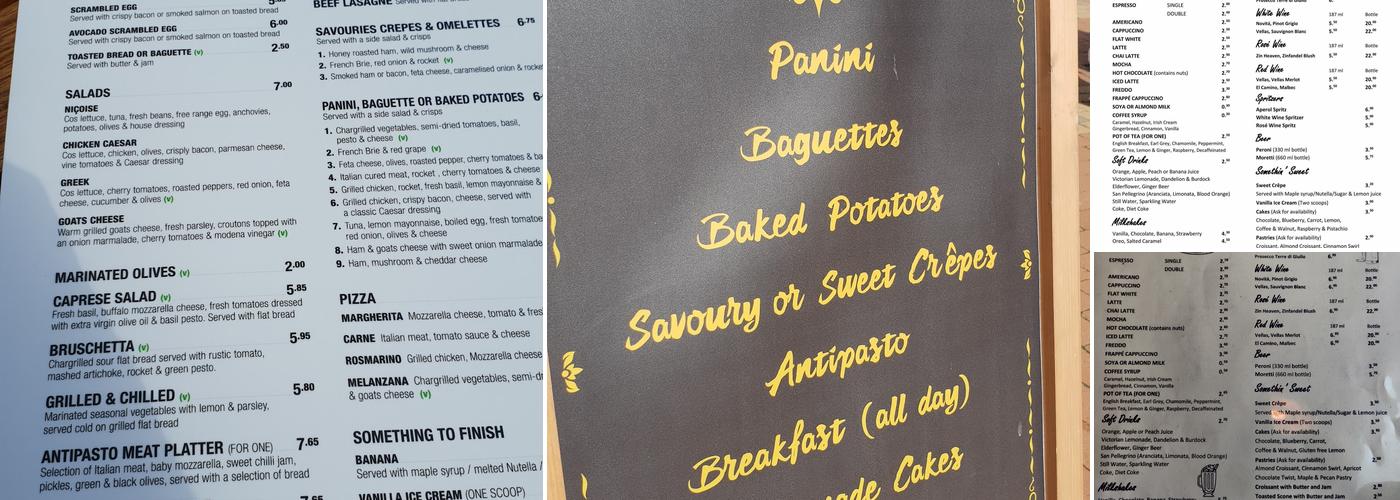 SCRAMBLED EGG
Served with crispy bacon or smoked salmon on toasted bread
AVOCADO SCRAMBLED EGG 6.00
Served with crispy bacon or smoked salmon on toasted bread
TOASTED BREAD OR BAGUETTE (v) 2.50
Served with butter & jam
SALADS 7.00
NIÇOISE
Cos lettuce, tuna, fresh beans, free range egg, anchovies,
potatoes, olives & house dressing
CHICKEN CAESAR
Cos lettuce, chicken, olives, crisply bacon, parmesan cheese,
vine tomatoes & Caesar dressing
GREEK
Cos lettuce, cherry tomatoes, roasted peppers, red onion, feta
cheese, cucumber & olives (v)
GOATS CHEESE
Warm grilled goats cheese, fresh parsley, croutons topped with
an onion marmalade, cherry tomatoes & modena vinegar (v)
MARINATED OLIVES (v) 2.00
CAPRESE SALAD (v) 5.85
Fresh basil, buffalo mozzarella cheese, fresh tomatoes dressed
with extra virgin olive oil & basil pesto. Served with flat bread
BRUSCHETTA (v) 5.95
Chargrilled sour flat bread served with rustic tomato,
mashed artichoke, rocket & green pesto.
GRILLED & CHILLED (v) 5.80
Marinated seasonal vegetables with lemon & parsley,
served cold on grilled flat bread
ANTIPASTO MEAT PLATTER (FOR ONE) 7.65
Selection of Italian meat, baby mozzarella, sweet chilli jam,
pickles, green & black olives, served with a selection of bread
BEEF LASAGNE
SAVOURIES CREPES & OMELETTES 6.75
Served with a side salad & crisps
1. Honey roasted ham, wild mushroom & cheese
2. French Brie, red onion & rocket (v)
3. Smoked ham or bacon, feta cheese, caramelised onion & rocket
PANINI, BAGUETTE OR BAKED POTATOES
Served with a side salad & crisps
1. Chargrilled vegetables, semi-dried tomatoes, basil,
pesto & cheese (v)
2. French Brie & red grape (v)
3. Feta cheese, olives, roasted pepper, cherry tomatoes &
4. Italian cured meat, rocket , cherry tomatoes & cheese
5. Grilled chicken, rocket, fresh basil, lemon mayonnaise &
6. Grilled chicken, crispy bacon, cheese, served with
a classic Caesar dressing
7. Tuna, lemon mayonnaise, boiled egg, fresh
red onion, olives & cheese
8. Ham & goats cheese with sweet onion marmalade
9. Ham, mushroom & cheddar cheese
PIZZA
MARGHERITA Mozzarella cheese, tomato &
CARNE Italian meat, tomato sauce & cheese
ROSMARINO Grilled chicken, Mozzarella cheese
MELANZANA Chargrilled vegetables,
& goats cheese (v)
SOMETHING TO FINISH
BANANA
Served with maple syrup / melted Nutella /
VANILLA ICE CREAM (ONE SCOOP)
Panini
Baguettes
Baked Potatoes
Savoury or Sweet Crêpes
Antipasto
Breakfast (all day)
Cakes
ESPRESSO SINGLE
DOUBLE
AMERICANO
CAPPUCCINO
FLAT WHITE
LATTE
CHAI LATTE
MOCHA
HOT CHOCOLATE (contains nuts)
ICED LATTE
FREDDO
FRAPPÉ CAPPUCCINO
SOYA OR ALMOND MILK
COFFEE SYRUP
Caramel, Hazelnut, Irish Cream
Gingerbread, Cinnamon, Vanilla
POT OF TEA (FOR ONE)
English Breakfast, Earl Grey, Chamomile, Peppermint,
Green Tea, Lemon & Ginger, Raspberry, Decaffeinated
Soft Drinks
Orange, Apple, Peach or Banana Juice
Victorian Lemonade, Dandelion & Burdock
Elderflower, Ginger Beer
San Pellegrino (Aranciata, Limonata, Blood Orange)
Still Water, Sparkling Water
Coke, Diet Coke
Milkshakes
Vanilla, Chocolate, Banana, Strawberry
Oreo, Salted Caramel
White Wine 187 ml Bottle
Novità, Pinot Grigio
Vellas, Sauvignon Blanc
Rosé Wine 187 ml Bottle
Zin Heaven, Zinfandel Blush
Red Wine 187 ml Bottle
Vellas, Vellas Merlot
El Camino, Malbec
Spritzers
Aperol Spritz
White Wine Spritzer
Rosé Wine Spritz
Beer
Peroni (330 ml bottle)
Moretti (660 ml bottle)
Somethin' Sweet
Sweet Crêpe
Served with Maple syrup/Nutella/Sugar & Lemon juice
Vanilla Ice Cream (Two scoops)
Cakes (Ask for availability)
Chocolate, Blueberry, Carrot, Lemon,
Coffee & Walnut, Raspberry & Pistachio
Pastries (Ask for availability)
Croissant, Almond Croissant, Cinnamon Swirl
ESPRESSO SINGLE
DOUBLE
AMERICANO
CAPPUCCINO
FLAT WHITE
LATTE
CHAI LATTE
MOCHA
HOT CHOCOLATE (contains nuts)
ICED LATTE
FREDDO
FRAPPÉ CAPPUCCINO
SOYA OR ALMOND MILK
COFFEE SYRUP
Caramel, Hazelnut, Irish Cream
Gingerbread, Cinnamon, Vanilla
POT OF TEA (FOR ONE)
English Breakfast, Earl Grey, Chamomile, Peppermint,
Green Tea, Lemon & Ginger, Raspberry, Decaffeinated
Soft Drinks
Orange, Apple or Peach Juice
Victorian Lemonade, Dandelion & Burdock
Elderflower, Ginger Beer
San Pellegrino (Aranciata, Limonata, Blood Orange)
Still Water, Sparkling Water
Coke, Diet Coke
Milkshakes
Prosecco Terre di Giulio
White Wine 187 ml Bottle
Novità, Pinot Grigio
Vellas, Sauvignon Blanc
Rosé Wine 187 ml Bottle
Zin Heaven, Zinfandel Blush
Red Wine 187 ml Bottle
Vellas, Vellas Merlot
El Camino, Malbec
Beer
Peroni (330 ml bottle)
Moretti (660 ml bottle)
Somethin' Sweet
Sweet Crêpe
Served with Maple syrup/Nutella/Sugar & Lemon juice
Vanilla Ice Cream (Two scoops)
Cakes (Ask for availability)
Chocolate, Blueberry, Carrot,
Coffee & Walnut, Gluten free Lemon
Pastries (Ask for availability)
Almond Croissant, Cinnamon Swirl, Apricot
Chocolate Twist, Maple & Pecan Pastry
Croissant with Butter and Jam
Toasted Scone with Butter and Jam